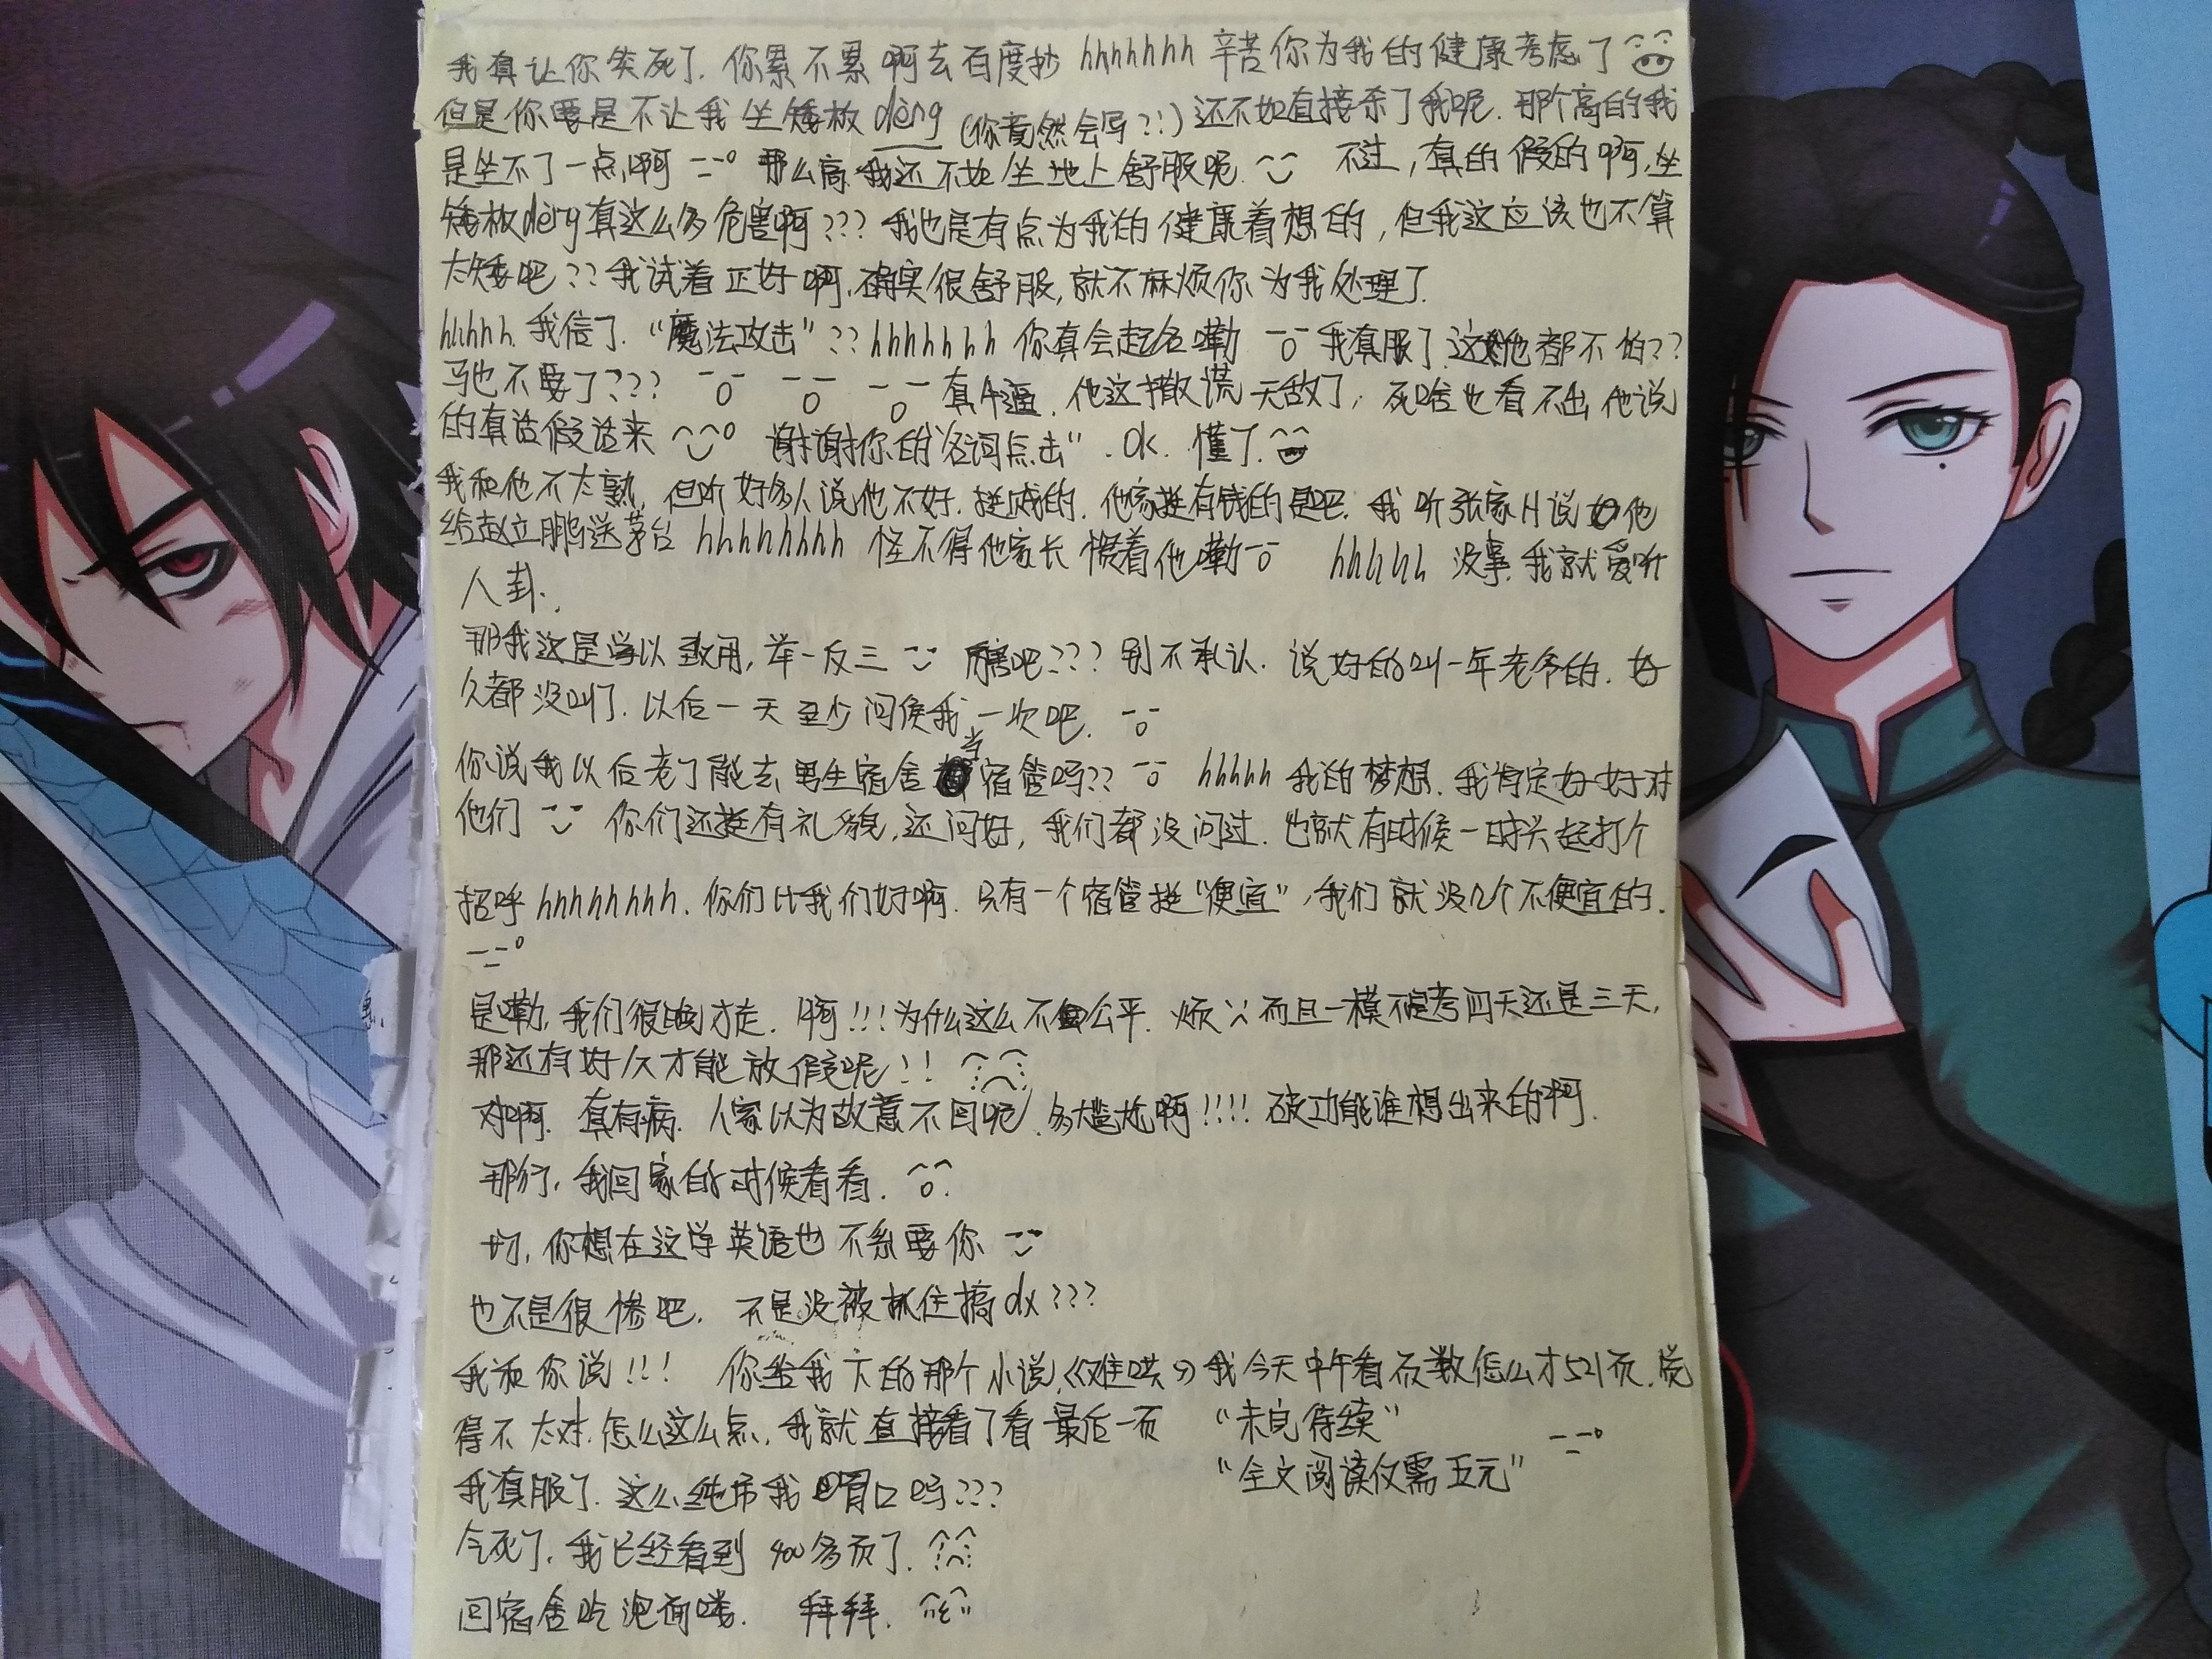 我真让你笑死了.你累不累啊去百度抄hhhhhhh辛苦你为我的健康考虑了
但是你要是不让我坐矮板dèng(你竟然会写?!)还不如直接杀了我呢.那个高的我
是坐不了一点啊 那么高.我还不如坐地上舒服呢. 不过,真的假的啊,坐
矮板dèng真这么多危害啊???我也是有点为我的健康着想的,但我这应该也不算
太矮吧??我试着正好啊,确实很舒服,就不麻烦你为我处理了.
hhhhh.我信了.“魔法攻击”??hhhhhhh 你真会起名嘞 我真服了.这他都不怕??
马也不要了??? 真牛逼.他这撒谎无敌了,死啥也看不出他说
的真话假话来 谢谢你的“名词点击”.OK.懂了.
我和他不太熟,但听好多人说他不好.挺贱的.他家挺有钱的是吧.我听张家H说他
给赵立鹏送茅台hhhhhhhh 怪不得他家长惯着他嘞 hhhhh 没事.我就爱听
八卦.
那我这是学以致用,举一反三 吧???别不承认.说好的叫一年老爷的.好
久都没叫了.以后一天至少问候我一次吧.
你说我以后老了能去男生宿舍当宿管吗?? hhhhh 我的梦想.我肯定好好对
他们 你们还挺有礼貌,还问好,我们都没问过.也就有时候一时兴起打个
招呼hhhhhhhh.你们比我们好啊.只有一个宿管挺“便宜”,我们就没几个不便宜的.
是嘞,我们很晚才走.啊!!!为什么这么不公平.烦 而且一模不是考四天还是三天,
那还有好久才能放假呢!!
对啊.真有病.人家以为故意不回呢,多尴尬啊!!!!破功能谁想出来的啊.
那行,我回家的时候看看.
切,你想在这学英语也不要你
也不是很惨吧. 不是没被抓住搞dx???
我和你说!!! 你给我下的那个小说《难哄》我今天中午看页数怎么才521页.觉
得不太对.怎么这么点,我就直接看了看最后一页 “未完待续”
“全文阅读仅需五元”
我真服了.这么纯吊我胃口吗???
死了.我已经看到400多页了.
回宿舍吃泡面喽. 拜拜.